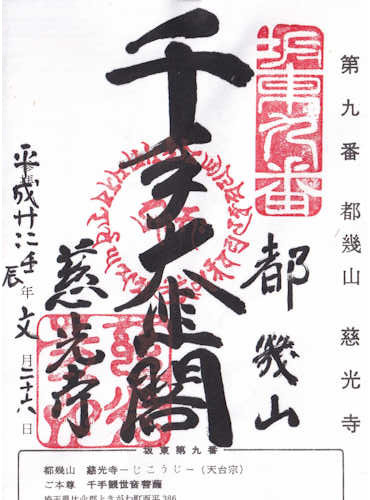 第九番 都幾山 慈光寺
坂東九番
都幾山
千手大悲閣
慈光寺
平成廿 壬辰年文月二十六日
坂東第九番
都幾山 慈光寺―じこうじ―(天台宗)
ご本尊 千手観世音菩薩
埼玉県比企郡ときがわ町西平386